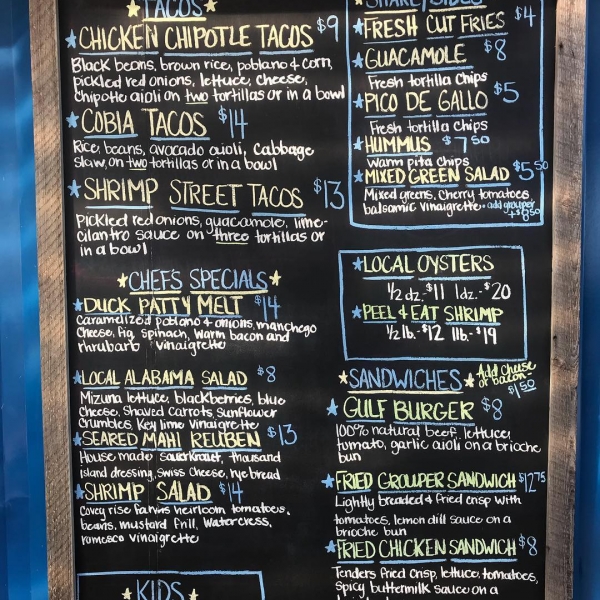 TACOS
CHICKEN CHIPOTLE TACOS $9
Black beans, brown rice, poblano & corn,
pickled red onions, lettuce, cheese,
chipotle aioli on two tortillas or in a bowl
COBIA TACOS $14
Rice, beans, avocado aioli, cabbage
slaw, on two tortillas or in a bowl
SHRIMP STREET TACOS $13
Pickled red onions, guacamole, lime-
cilantro sauce on three tortillas or
in a bowl
CHEF'S SPECIALS
DUCK PATTY MELT $14
Caramelized poblano & onions, manchego
cheese, fig, spinach, warm bacon and
rhubarb vinaigrette
LOCAL ALABAMA SALAD $8
Mizuna lettuce, blackberries, blue
cheese, shaved carrots, sunflower
crumbles, key lime vinaigrette
SEARED MAHI REUBEN $13
House made sauerkraut, thousand
island dressing, swiss cheese, rye bread
SHRIMP SALAD $14
Covey rise farms heirloom tomatoes,
beans, mustard frill, watercress,
romesco vinaigrette
KIDS
SHARE/SIDES
FRESH CUT FRIES $4
GUACAMOLE $8
Fresh tortilla chips
PICO DE GALLO $5
Fresh tortilla chips
HUMMUS $7.50
warm pita chips
MIXED GREEN SALAD $5.50
Mixed greens, cherry tomatoes
balsamic vinaigrette - add grouper
+$8.50
LOCAL OYSTERS
1/2 dz.-$11 1dz.-$20
PEEL & EAT SHRIMP
1/2 lb.-$12 1lb.-$19
SANDWICHES Add cheese
or bacon-
$1.50
GULF BURGER $8
100% natural beef, lettuce,
tomato, garlic aioli on a brioche
bun
FRIED GROUPER SANDWICH $12.75
Lightly breaded & fried crisp with
tomatoes, lemon dill sauce on a
brioche bun
FRIED CHICKEN SANDWICH $8
Tenders fried crisp, lettuce, tomatoes,
spicy buttermilk sauce on a